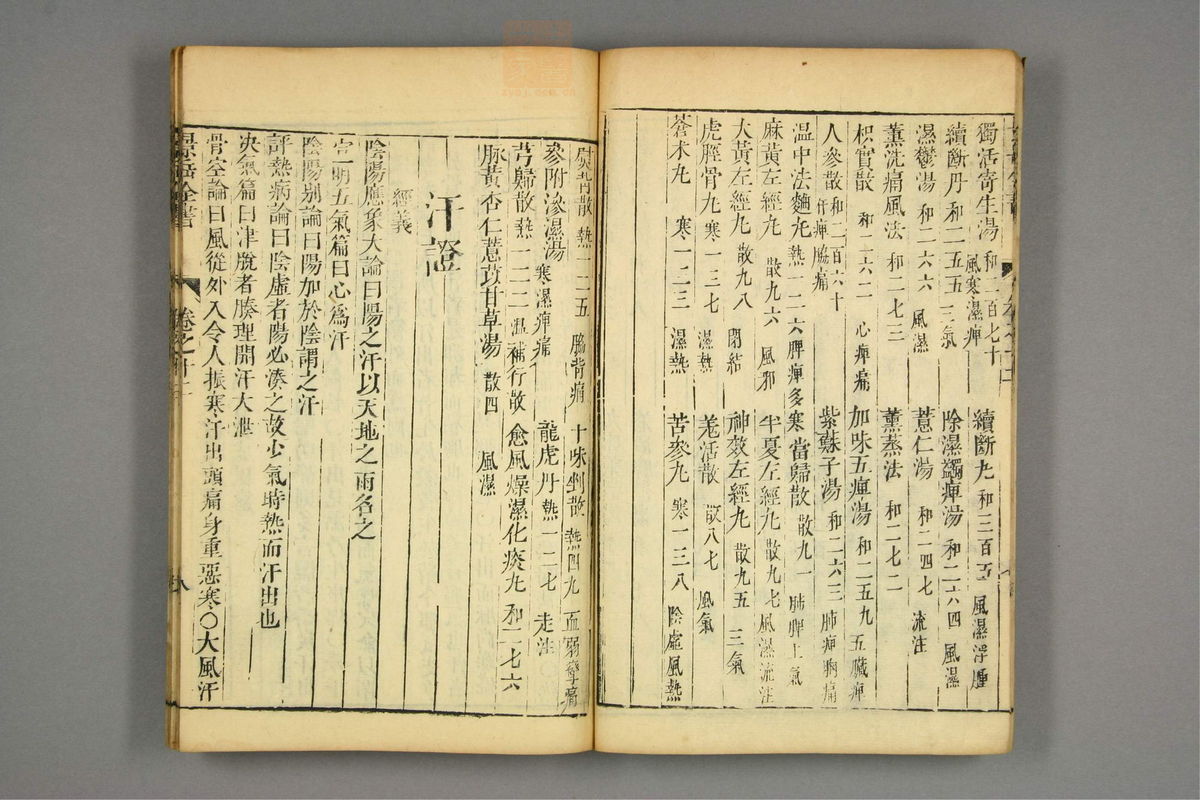 獨活寄生湯 和二百七十 風寒濕痺 續斷丸 和三百 風濕浮腫
續斷丹 和二五五 三氣 除濕蠲痺湯 和二六四 風濕
濕鬱湯 和二六六 風濕 薏仁湯 和二四七 流注
薰洗痛風法 和二七三 薰蒸法 和二七二
枳實散 和二六二 心痺痛 加味五痺湯 和二五九 五臟痺
人參散 和二百六十 肝痺脇痛 紫蘇子湯 和二六三 肺痺胸痛
溫中法麯丸 熱二六 脾痺多寒 當歸散 散九一 肺脾上氣
麻黃左經丸 散九六 風邪 半夏左經丸 散九七 風濕流注
大黃左經丸 散九八 閉結 神效左經丸 散九五 三氣
虎脛骨丸 寒一三七 濕熱 羌活散 散八七 風氣
蒼术丸 寒一二三 濕熱 苦參丸 寒一三八 陰虛風熱
煨腎散 熱一二五 腰背痛 十味剉散 熱四九 血弱攣痛
參附滲濕湯 寒濕痺痛 龍虎丹 熱一二七 走注
芎歸散 熱一二二 溫補行散 愈風燥濕化痰丸 和二七六
豚黃杏仁薏苡甘草湯 散四 風濕
汗證
經義
陰陽應象大論曰陽之汗以天地之雨名之
宣明五氣篇曰心爲汗
陰陽別論曰陽加於陰謂之汗
評熱病論曰陰虛者陽必湊之故少氣時熱而汗出也
決氣篇曰津脫者腠理開汗大泄
骨空論曰風從外入令人振寒汗出頭痛身重惡寒○大風汗
景岳全書 卷之十二 八